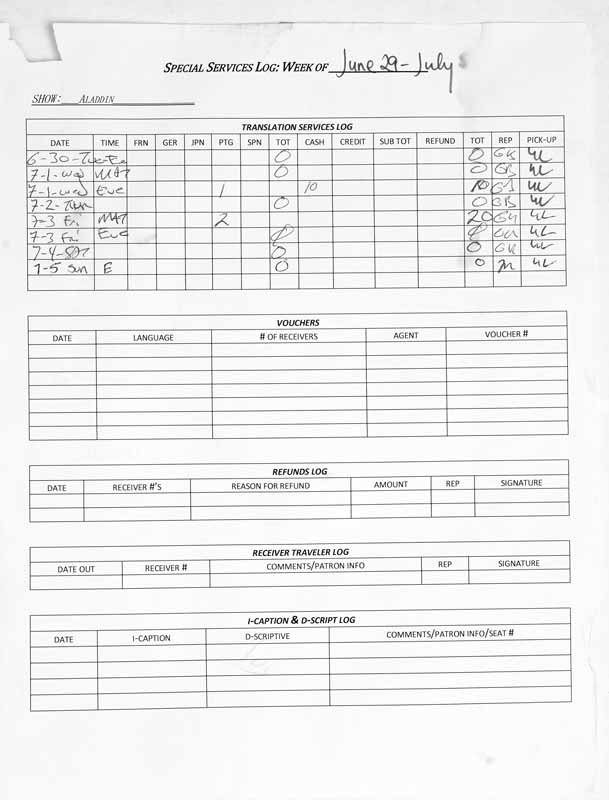 SPECIAL SERVICES LOG: WEEK OF June 29 - July 5
SHOW: ALADDIN
TRANSLATION SERVICES LOG
DATE TIME FRN GER JPN PTG SPN TOT CASH CREDIT SUB TOT REFUND TOT REP PICK-UP
6-30-Tue Eve 0 0 GB
7-1-wed MAT 0 0 GB
7-1-wed Eve 1 10 10 GB
7-2-Thur 0 0 GB
7-3 Fri MAT 2 20
7-3 Fri Eve
7-4-SAT 0 0
7-5 Sun E 0 0
VOUCHERS
DATE LANGUAGE # OF RECEIVERS AGENT VOUCHER #
REFUNDS LOG
DATE RECEIVER #'S REASON FOR REFUND AMOUNT REP SIGNATURE
RECEIVER TRAVELER LOG
DATE OUT RECEIVER # COMMENTS/PATRON INFO REP SIGNATURE
I-CAPTION & D-SCRIPT LOG
DATE I-CAPTION D-SCRIPTIVE COMMENTS/PATRON INFO/SEAT #